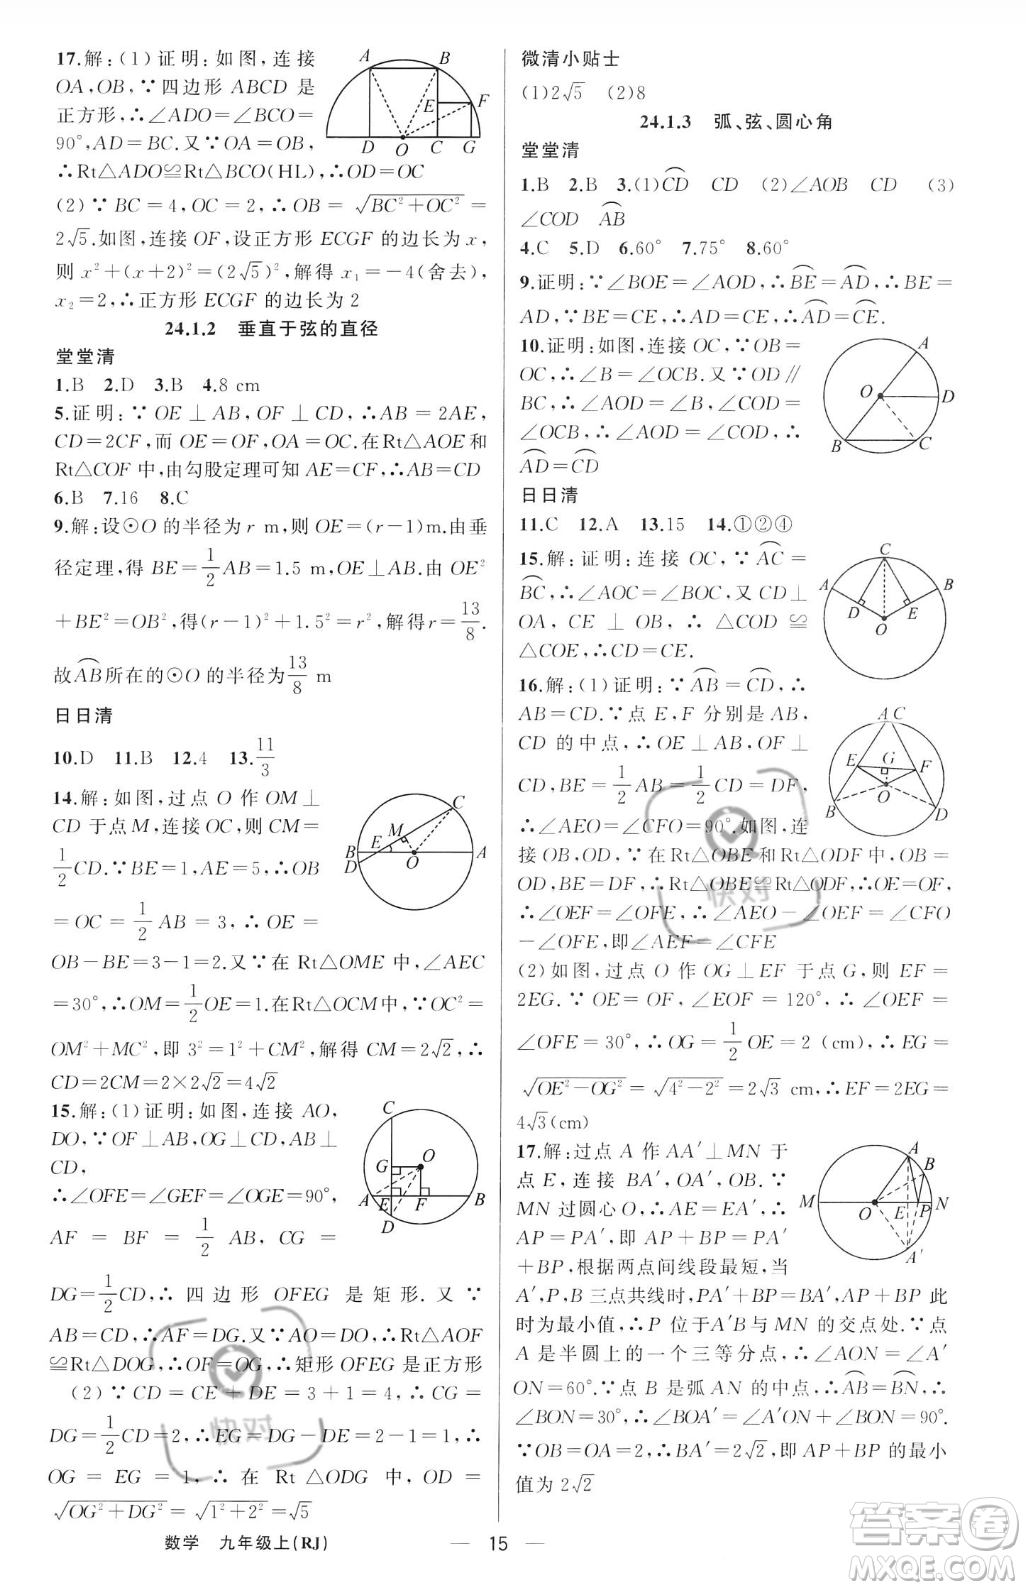 17.解:(1)证明:如图,连接
OA,OB,∵四边形 ABCD 是
正方形,∴∠ADO=∠BCO=
90°,AD=BC.又∵OA=OB,
∴Rt△ADO≌Rt△BCO(HL),∴OD=OC
(2)∵BC=4,OC=2,∴OB=√(BC²+OC²)=
2√5.如图,连接 OF,设正方形 ECGF 的边长为 x,
则 x²+(x+2)²=(2√5)²,解得 x₁=-4(舍去),
x₂=2,∴正方形 ECGF 的边长为 2
A B E F D O C G
24.1.2 垂直于弦的直径
堂堂清
1.B 2.D 3.B 4.8 cm
5.证明:∵OE⊥AB,OF⊥CD,∴AB=2AE,
CD=2CF,而 OE=OF,OA=OC.在 Rt△AOE 和
Rt△COF 中,由勾股定理可知 AE=CF,∴AB=CD
6.B 7.16 8.C
9.解:设⊙O 的半径为 r m,则 OE=(r-1)m.由垂
径定理,得 BE=1/2 AB=1.5 m,OE⊥AB.由 OE²
+BE²=OB²,得(r-1)²+1.5²=r²,解得 r=13/8.
故⌒AB所在的⊙O 的半径为13/8 m
日日清
10.D 11.B 12.4 13.11/3
14.解:如图,过点 O 作 OM⊥
CD 于点 M,连接 OC,则 CM=
1/2 CD.∵BE=1,AE=5,∴OB
=OC=1/2 AB=3,∴OE=
OB-BE=3-1=2.又∵在 Rt△OME 中,∠AEC
=30°,∴OM=1/2 OE=1.在 Rt△OCM 中,∵OC²=
OM²+MC²,即 3²=1²+CM²,解得 CM=2√2,∴
CD=2CM=2×2√2=4√2
C M E B D O A
15.解:(1)证明:如图,连接 AO,
DO,∵OF⊥AB,OG⊥CD,AB⊥
CD,
∴∠OFE=∠GEF=∠OGE=90°,
AF=BF=1/2 AB,CG=
DG=1/2 CD,∴四边形 OFEG 是矩形.又∵
AB=CD,∴AF=DG.又∵AO=DO,∴Rt△AOF
≌Rt△DOG,∴OF=OG,∴矩形 OFEG 是正方形
(2)∵CD=CE+DE=3+1=4,∴CG=
DG=1/2 CD=2,∴EG=DG-DE=2-1=1,∴
OG=EG=1,∴在 Rt△ODG 中,OD=
√(OG²+DG²)=√(1²+2²)=√5
C G O A E F B D
微清小贴士
(1)2√5 (2)8
24.1.3 弧、弦、圆心角
堂堂清
1.B 2.B 3.(1)⌒CD CD (2)∠AOB CD (3)
∠COD ⌒AB
4.C 5.D 6.60° 7.75° 8.60°
9.证明:∵∠BOE=∠AOD,∴⌒BE=⌒AD,∴BE=
AD,∵BE=CE,∴AD=CE,∴⌒AD=⌒CE.
10.证明:如图,连接 OC,∵OB=
OC,∴∠B=∠OCB.又∵OD∥
BC,∴∠AOD=∠B,∠COD=
∠OCB,∴∠AOD=∠COD,∴
⌒AD=⌒CD
A O D B C
日日清
11.C 12.A 13.15 14.①②④
15.解:证明:连接 OC,∵⌒AC=
⌒BC,∴∠AOC=∠BOC,又∵CD⊥
OA,CE⊥OB,∴△COD≌
△COE,∴CD=CE.
C A B D E O
16.解:(1)证明:∵⌒AB=⌒CD,∴
AB=CD.∵点 E,F 分别是 AB,
CD 的中点,∴OE⊥AB,OF⊥
CD,BE=1/2 AB=1/2 CD=DF,
∴∠AEO=∠CFO=90°.如图,连
接 OB,OD,∵在 Rt△OBE 和 Rt△ODF 中,OB=
OD,BE=DF,∴Rt△OBE≌Rt△ODF,∴OE=OF,
∴∠OEF=∠OFE,∴∠AEO-∠OEF=∠CFO
-∠OFE,即∠AEF=∠CFE
(2)如图,过点 O 作 OG⊥EF 于点 G,则 EF=
2EG.∵OE=OF,∠EOF=120°,∴∠OEF=
∠OFE=30°,∴OG=1/2 OE=2(cm),∴EG=
√(OE²-OG²)=√(4²-2²)=2√3 cm,∴EF=2EG=
4√3(cm)
A C E G F O B D
17.解:过点 A 作 AA′⊥MN 于
点 E,连接 BA′,OA′,OB.∵
MN 过圆心O,∴AE=EA′,∴
AP=PA′,∴AP+BP=PA′
+BP,根据两点间线段最短,当
A′,P,B 三点共线时,PA′+BP=BA′,此
时为最小值,∴P 位于 A′B 与 MN 的交点处.∵点
A 是半圆上的一个三等分点,∴∠AON=∠A′
ON=60°.∵点 B 是弧 AN 的中点,∴⌒AB=⌒BN,∴
∠BON=30°,∴∠BOA′=∠BON+∠A′ON=90°.
∵OB=OA=2,∴BA′=2√2,即 AP+BP 的最小
值为 2√2
A B M O E P N A′
快对
快对
数学 九年级上(RJ)
15
答案圈
MXQE.COM